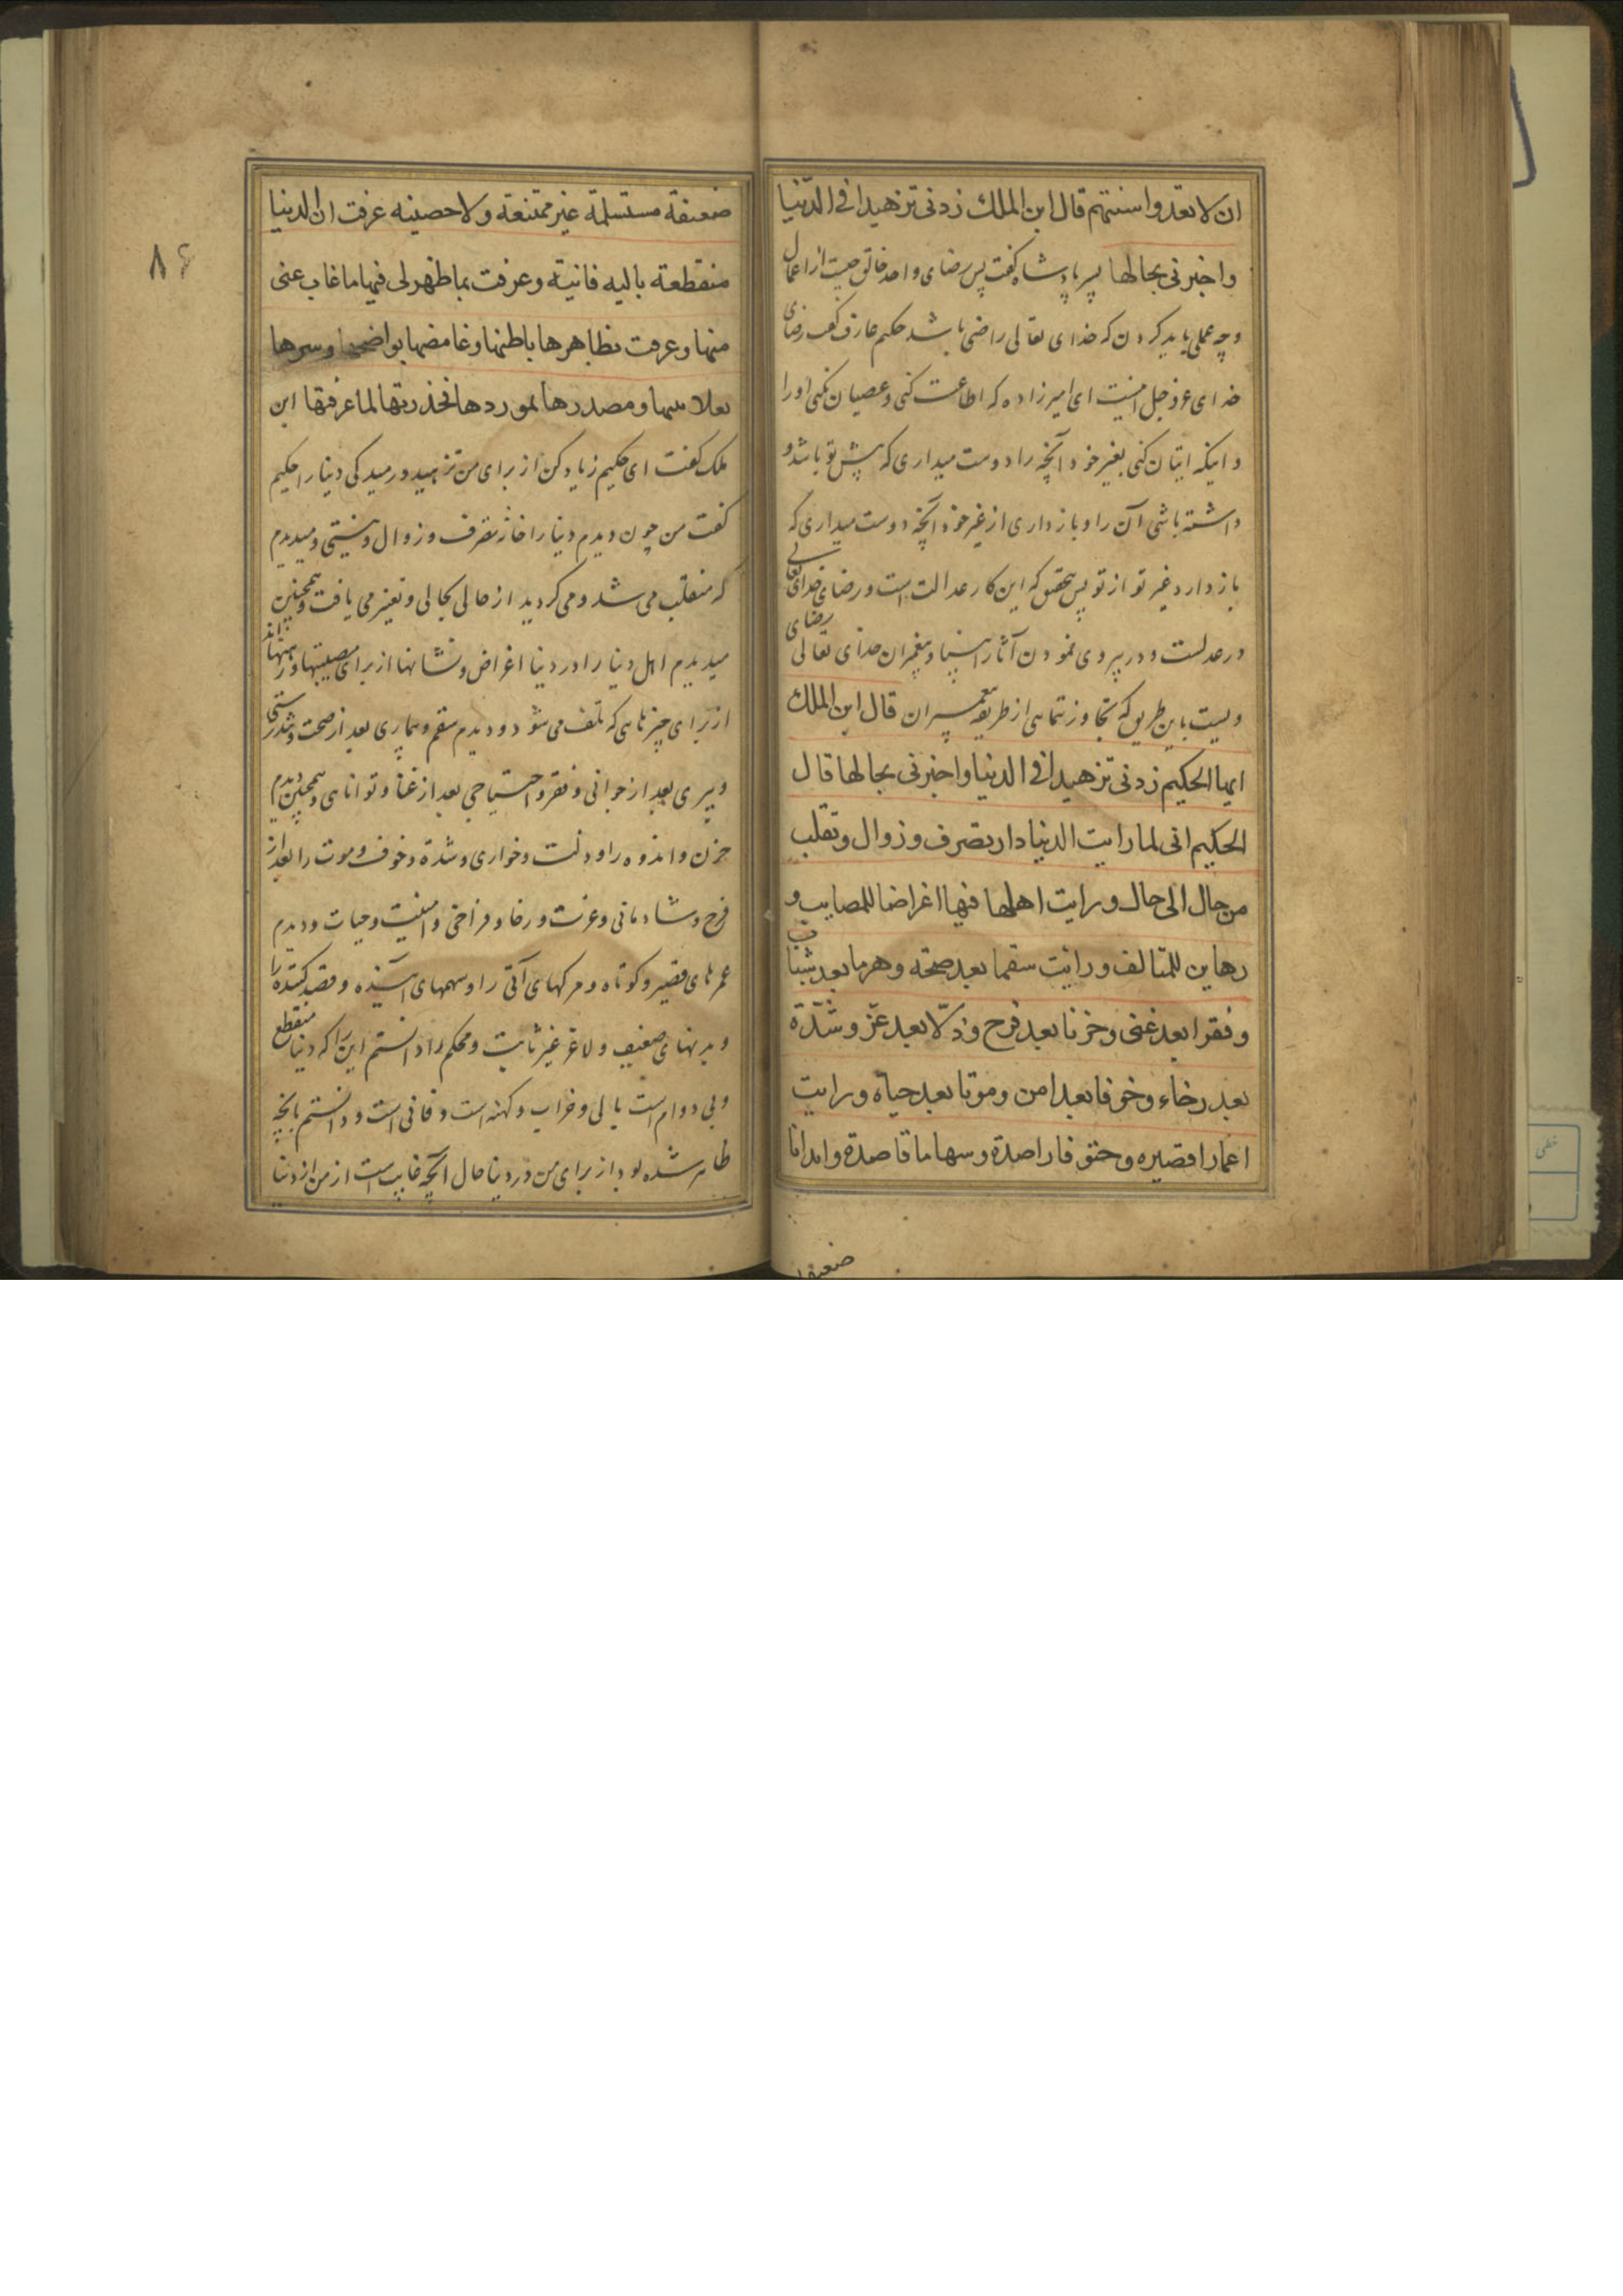 ان لا تعدوا سنتهم قال ابن الملك زدنی تزهیدا فی الدنیا
واخبرنی بحالها پسر پادشاه گفت پس رضای واحد خالق چیست از اعمال
و چه عملی باید کردن که خدای تعالی راضی باشد حکیم عارف گفت رضای
خدای عز و جل اینست ای امیرزاده که اطاعت کنی و عصیان نکنی او را
و اینکه اتیان کنی بغیر خود آنچه را دوست میداری که پیش تو باشد و
داشته باشی آن را و بازداری از غیر خود آنچه دوست میداری که
باز دارد غیر تو از تو پس بتحقیق که این کار عدالت است و رضای خدای تعالی
در عدلست و در پیروی نمودن آثار انبیا و پیغمبران خدای تعالی رضای
ویست باین طریق که تجاوز ننمایی از طریقه پیغمبران قال ابن الملك
ایها الحکیم زدنی تزهیدا فی الدنیا واخبرنی بحالها قال
الحکیم انی لما رایت الدنیا دار تصرف وزوال وتقلب
من حال الی حال ورایت اهلها فیها اغراضا للمصایب و
رهاین للمتالف ورایت سقما بعد صحة وهرما بعد شباب
وفقرا بعد غنی وحزنا بعد فرح وذلّا بعد عزّ وشدّة
بعد رخاء وخوفا بعد امن وموتا بعد حیاة ورایت
اعمارا قصیره وحتوفا راصدة وسهاما قاصدة وابدانا
ضعیفا
۸۶
ضعیفة مستسلمة غیر ممتنعة ولا حصینه عرفت ان الدنیا
منقطعة بالیه فانیة وعرفت بما ظهر لی فیها ما غاب عنی
منها وعرفت بظاهرها باطنها وغامضها بواضحها وسرها
بعلانیتها ومصدرها بموردها فحذرتها لما عرفتها ابن
ملک گفت ای حکیم زیاد کن از برای من تزهید و رمیدگی دنیا را حکیم
گفت من چون دیدم دنیا را خانه تصرف و زوال و نیستی و میدیدم
که منقلب می شد و می گردید از حالی بحالی و تغیر می یافت و همچنین
میدیدم اهل دنیا را در دنیا اغراض و نشانها از برای مصیبتها و رهنها اند
از برای چیزهایی که تلف می شود و دیدم سقم و بیماری بعد از صحت و تندرستی
و پیری بعد از جوانی و فقر و احتیاجی بعد از غنا و توانایی و همچنین دیدم
حزن و اندوه را و ذلت و خواری و شدة و خوف و موت را بعد از
فرح و شادمانی و عزت و رخا و فراخی و امنیت و حیات و دیدم
عمرهای قصیر و کوتاه و مرگهای آتی را و سهمهای آینده و قصد کننده را
و بدنهای ضعیف و لاغر غیر ثابت و محکم را دانستم این را که دنیا منقطع
و بی دوام است بالی و خراب و کهنه است و فانی است و دانستم بآنچه
ظاهر شده بود از برای من در دنیا حال آنچه غایب است از من از دنیا
خطی